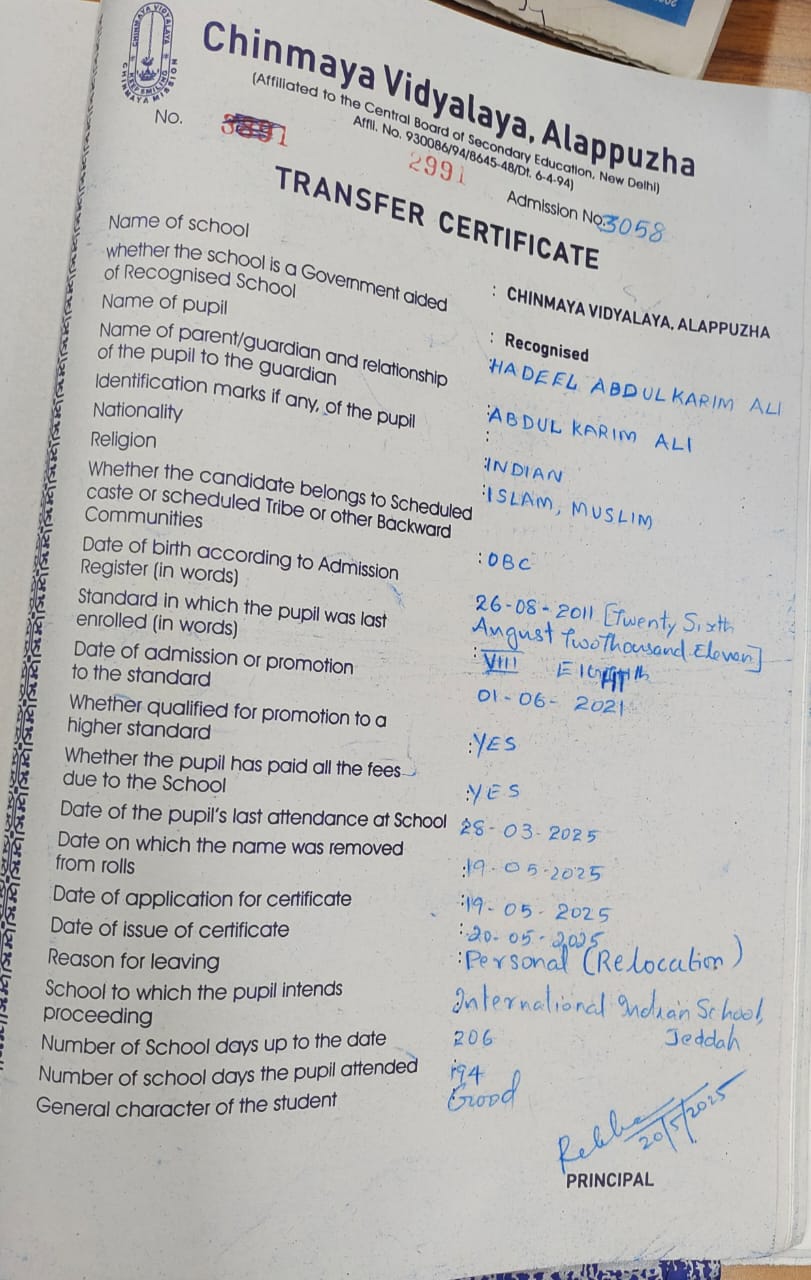 CHINMAYA VIDYALAYA
KEEP SMILING
CHINMAYA MISSION
Chinmaya Vidyalaya, Alappuzha
(Affiliated to the Central Board of Secondary Education, New Delhi)
Affli. No. 930086/94/8645-48/Dt. 6-4-94)
No. 3891
2991
Admission No. 3058
TRANSFER CERTIFICATE
Name of school : CHINMAYA VIDYALAYA, ALAPPUZHA
whether the school is a Government aided
of Recognised School : Recognised
Name of pupil : HADEEL ABDUL KARIM ALI
Name of parent/guardian and relationship
of the pupil to the guardian : ABDUL KARIM ALI
Identification marks if any, of the pupil :
Nationality : INDIAN
Religion : ISLAM, MUSLIM
Whether the candidate belongs to Scheduled
caste or scheduled Tribe or other Backward
Communities : OBC
Date of birth according to Admission
Register (in words) 26-08-2011 [Twenty Sixth
August Two Thousand Eleven]
Standard in which the pupil was last
enrolled (in words) : VIII EIGHTH
Date of admission or promotion
to the standard 01-06-2021
Whether qualified for promotion to a
higher standard : YES
Whether the pupil has paid all the fees
due to the School : YES
Date of the pupil's last attendance at School 28-03-2025
Date on which the name was removed
from rolls : 19-05-2025
Date of application for certificate : 19-05-2025
Date of issue of certificate : 20-05-2025
Reason for leaving : Personal (Relocation)
School to which the pupil intends
proceeding International Indian School,
Jeddah
Number of School days up to the date 206
Number of school days the pupil attended 194
General character of the student Good
Rekha
20/5/2025
PRINCIPAL